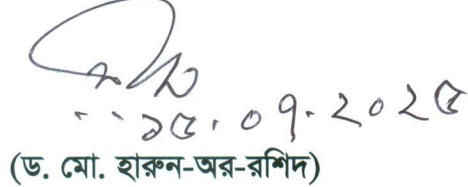 ১৫.০৭.২০২৫
(ড. মো. হারুন-অর-রশিদ)